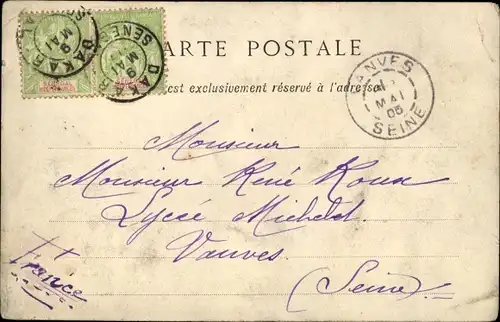 CARTE POSTALE
est exclusivement réservé à l'adresse
DAKAR
9
MAI
DAKAR
SENE
9
MAI
VANVES
MAI
05
SEINE
Monsieur
Monsieur René Roux
Lycée Michelet
Vanves
(Seine)
France